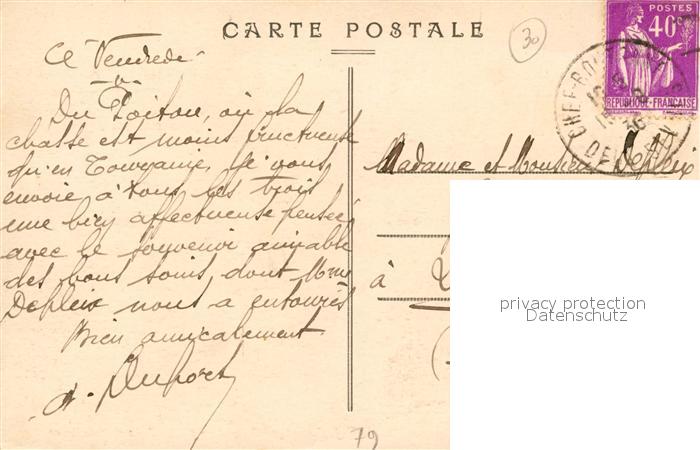 CARTE POSTALE
30
POSTES
40c
RÉPUBLIQUE-FRANÇAISE
Ce Vendredi
Du Poitou, où la
chasse est moins fructueuse
qu'en Touraine, je vous
envoie à tous les trois
une bien affectueuse pensée
avec le souvenir aimable
des bons soins, dont Mme
Depleix nous a entourés
Bien amicalement
A. Duport
Madame et Monsieur Depleix
à
79
privacy protection
Datenschutz